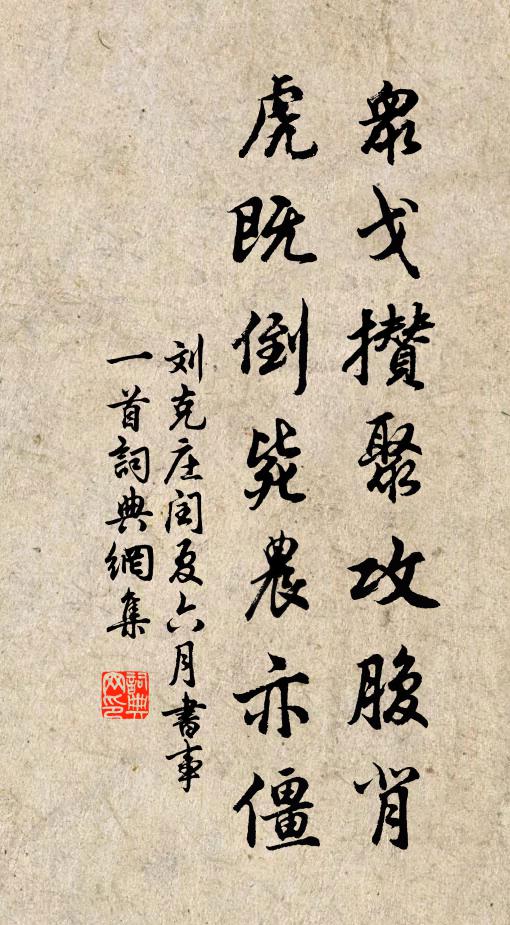 眾戈攢聚攻腹背
虎既倒毙農亦僵
刘克庄闰夏六月書事
一首詞典網集
詞典网印